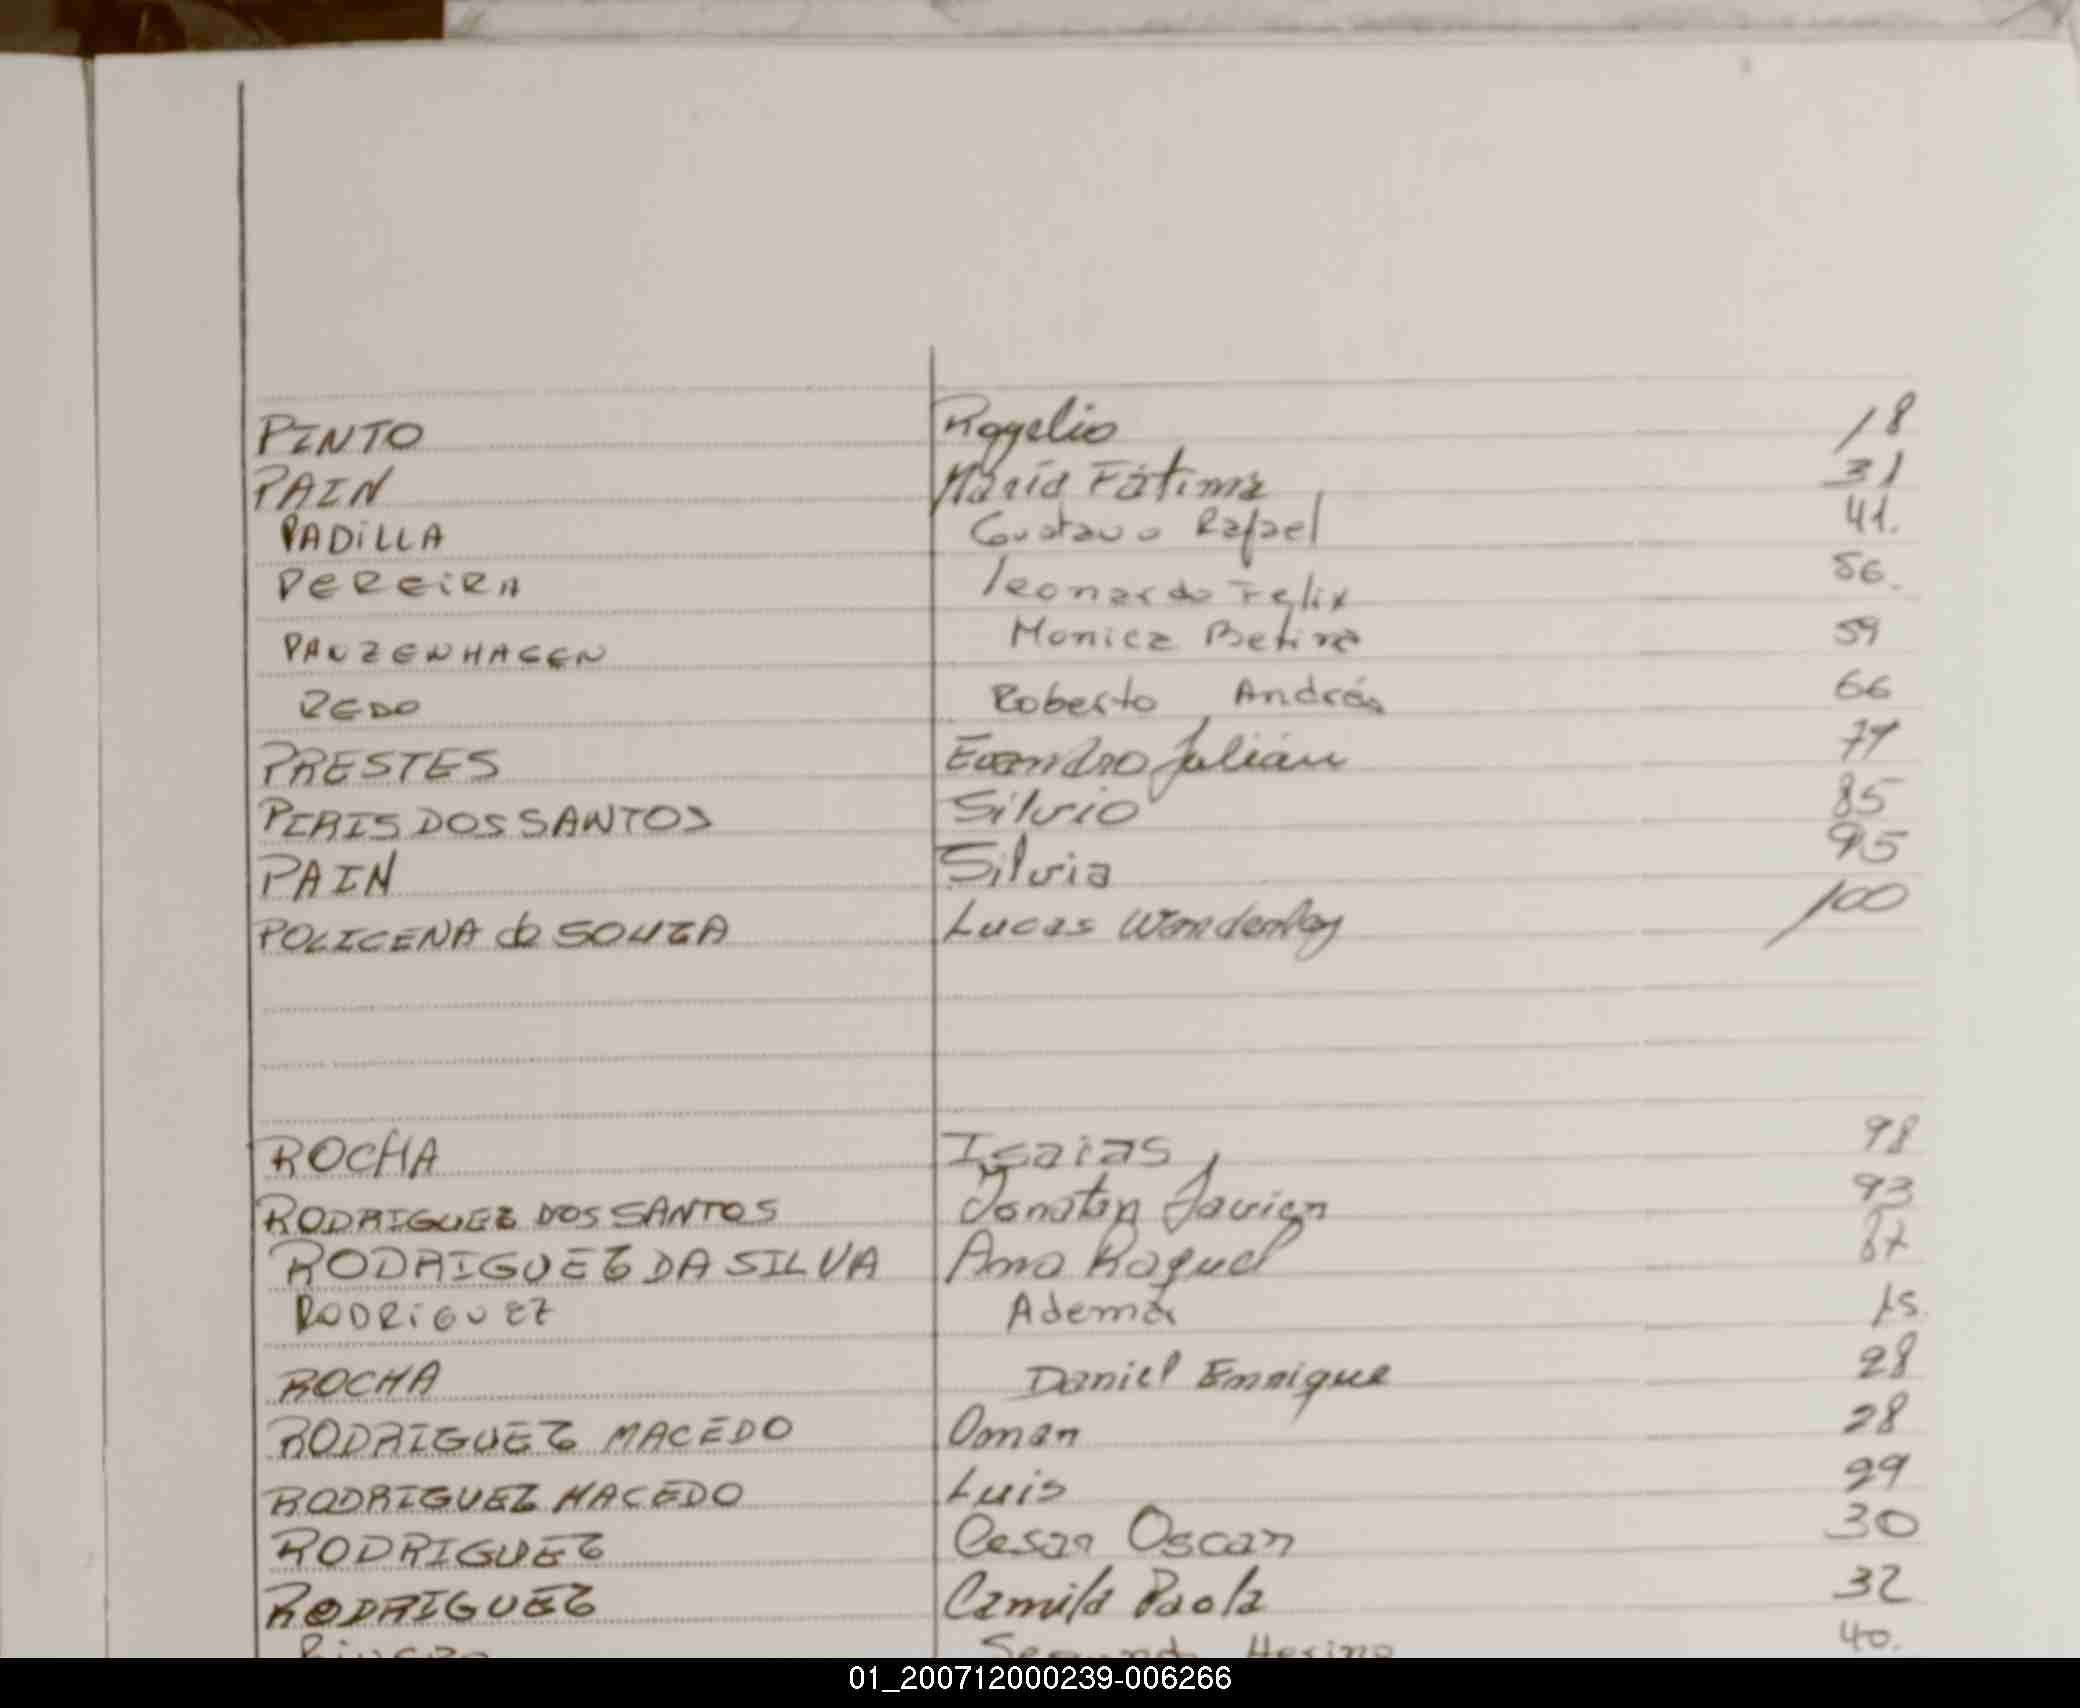 PINTO Rogelio 18
PAIN María Fátima 31
PADiLLA Gustavo Rafael 41.
PEREiRA leonardo Felix 56.
PANZENHAGEN Monica Betina 59
REDO Roberto Andrés 66
PRESTES Evandro Julián
PIRIS DOS SANTOS Silvio 85
PAIN Silvia 95
POLICENA de SOUZA Lucas Wanderley 100
ROCHA Isaias 98
RODRIGUEZ DOS SANTOS Jonatan Javier 93
RODRIGUEZ DA SILVA Ana Raquel
RODRiGUEZ Ademar 15.
ROCHA Daniel Enrique 28
RODRIGUEZ MACEDO Omar 28
RODRIGUEZ MACEDO Luis 29
RODRIGUEZ Cesar Oscar 30
RODRIGUEZ Camila Paola 32
40.
01_200712000239-006266